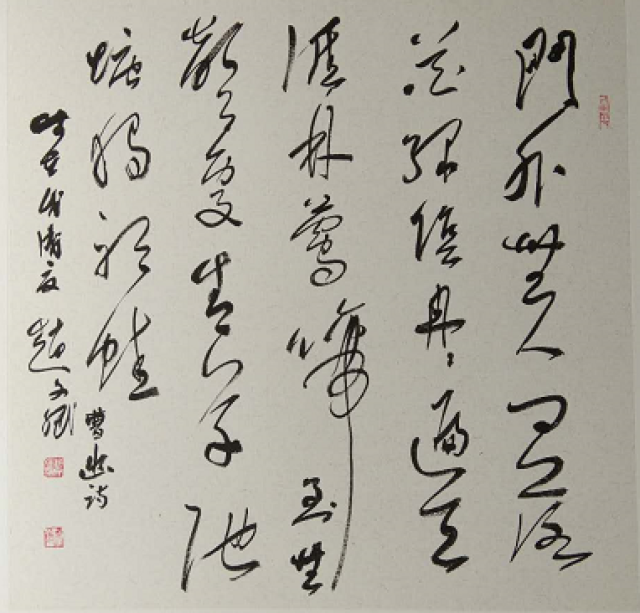 門外無人問落
花綠陰冉冉遍天
涯林鶯啼到無
聲處青草池
塘獨聽蛙
曹豳詩
清夏 趙文